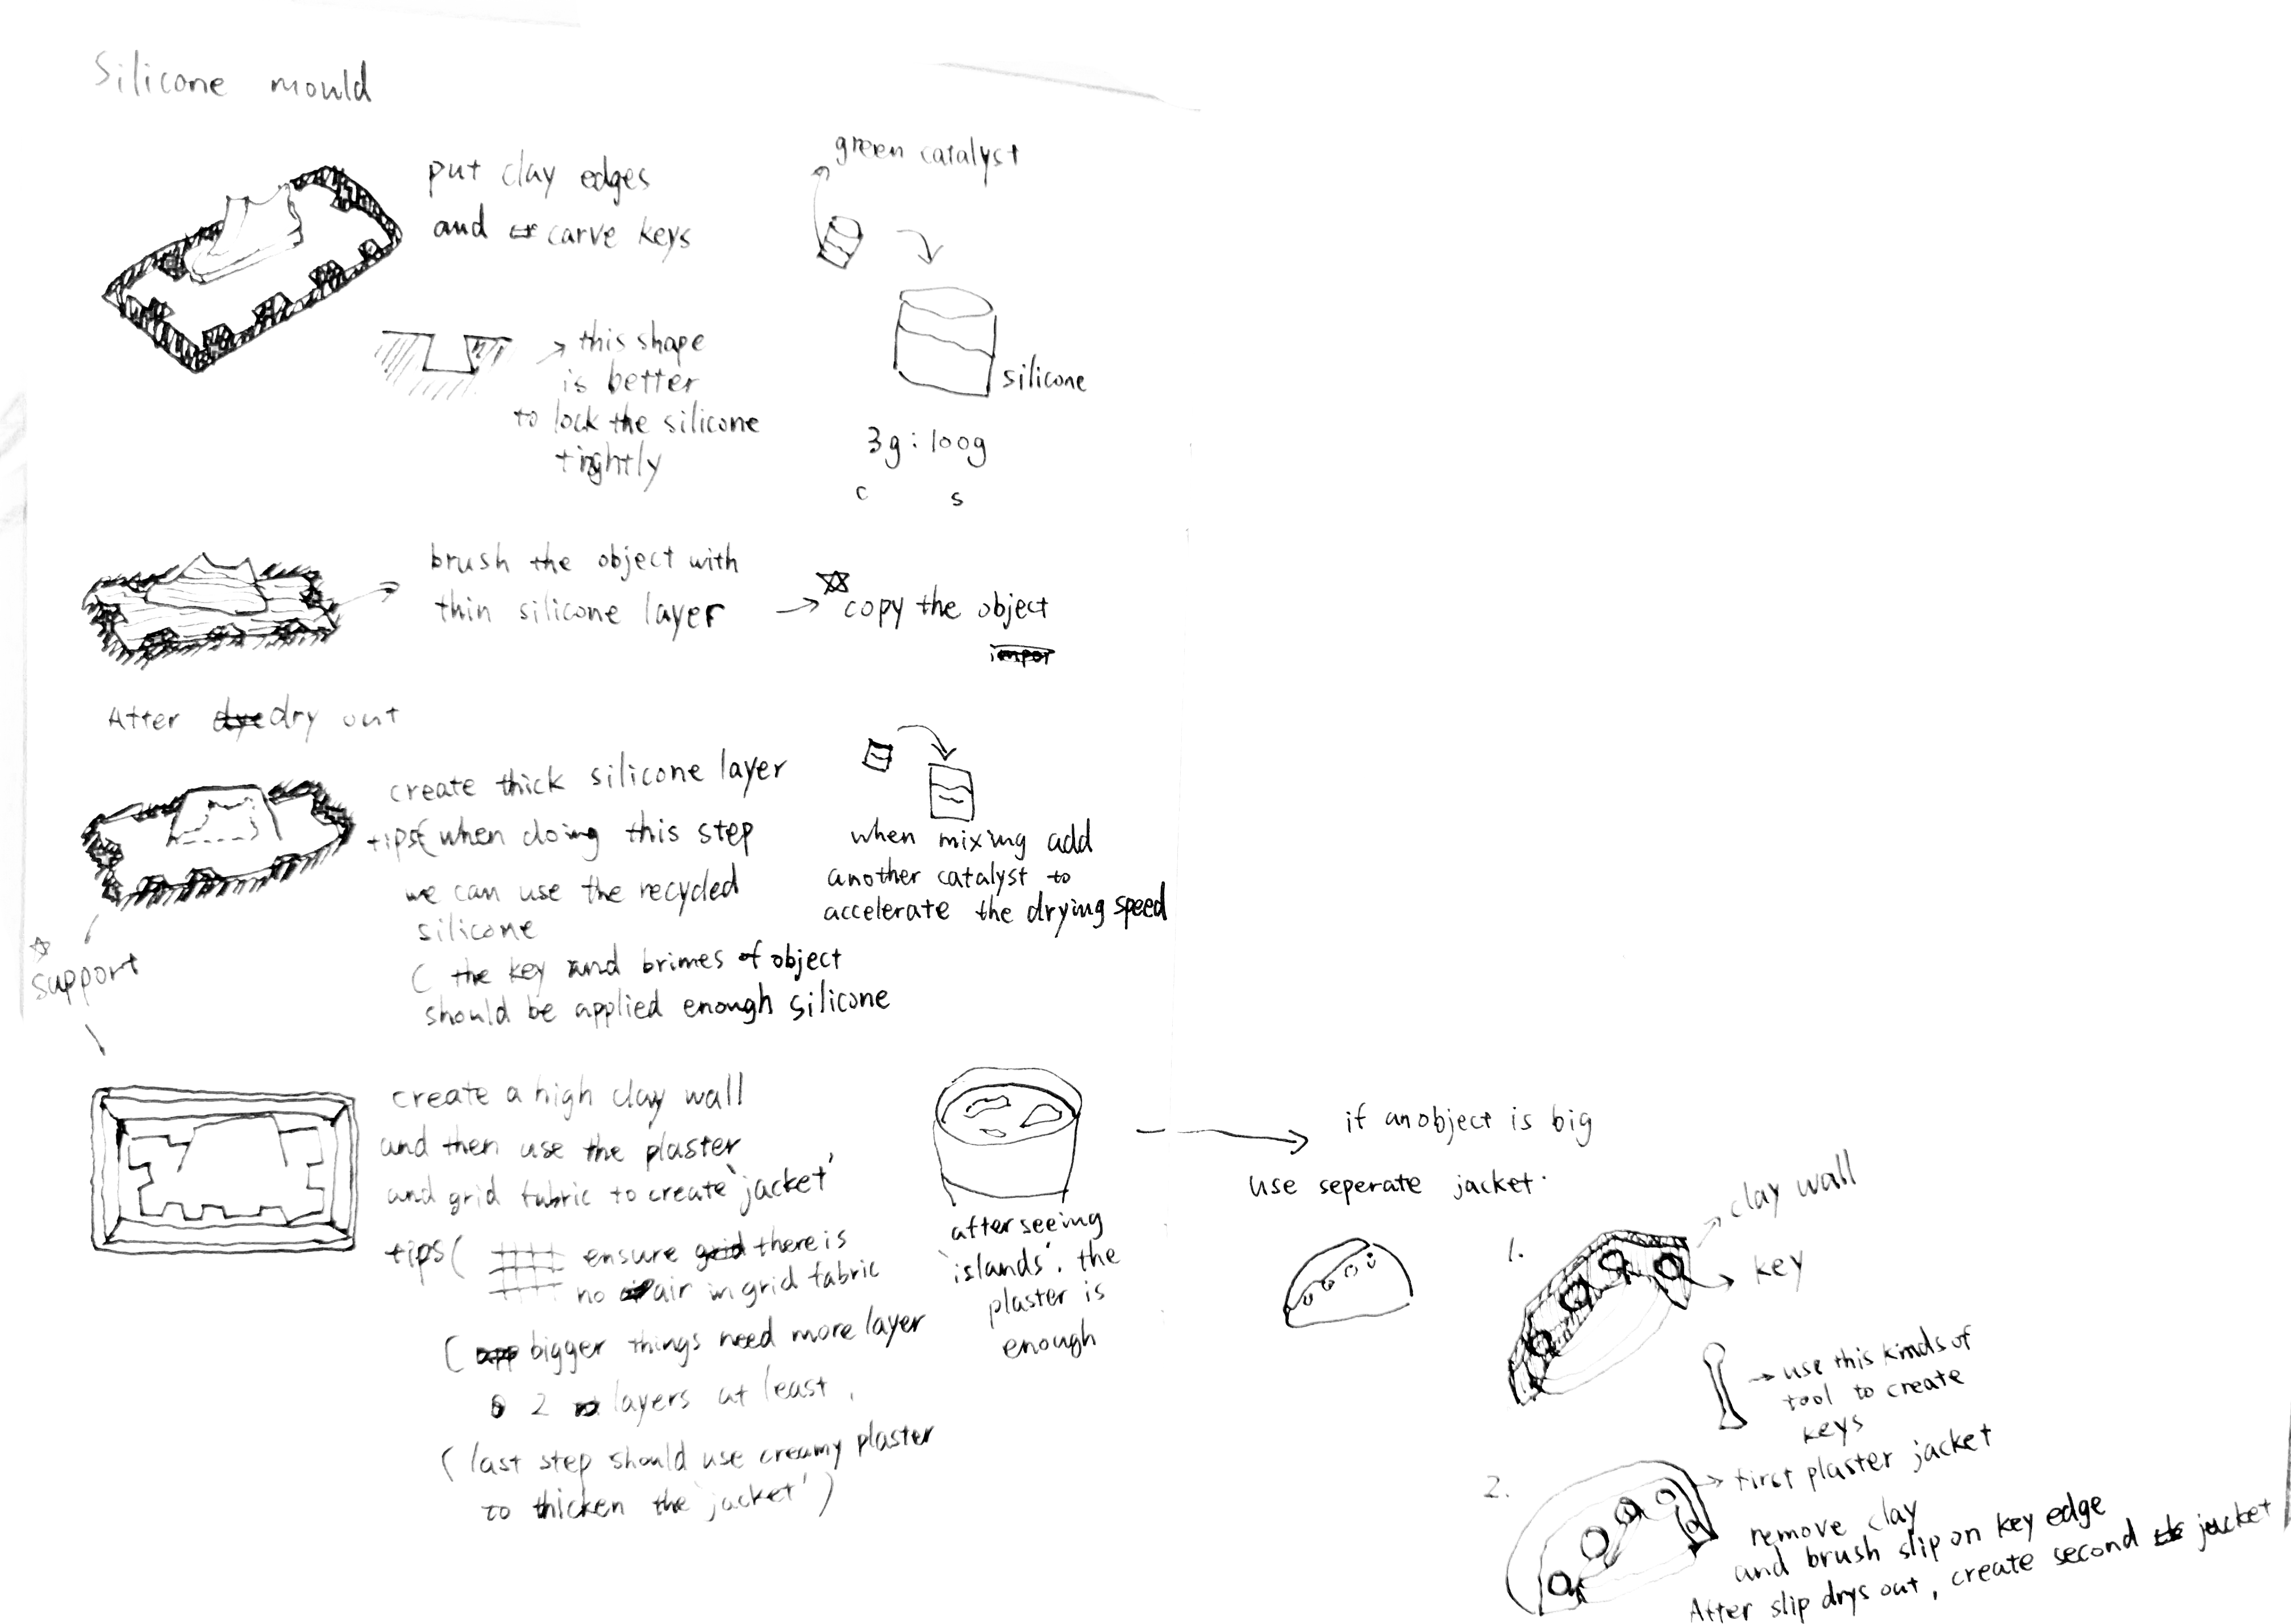 Silicone mould
put clay edges
and carve keys
green catalyst
silicone
3g : 100g
c s
this shape
is better
to lock the silicone
tightly
brush the object with
thin silicone layer
copy the object
After dry out
create thick silicone layer
tips( when doing this step
we can use the recycled
silicone
( the key and brimes of object
should be applied enough silicone
when mixing add
another catalyst to
accelerate the drying speed
support
create a high clay wall
and then use the plaster
and grid fabric to create 'jacket'
tips( ensure there is
no air in grid fabric
( bigger things need more layer
2 layers at least.
( last step should use creamy plaster
to thicken the 'jacket' )
after seeing
'islands', the
plaster is
enough
if an object is big
use seperate jacket.
1.
clay wall
key
use this kinds of
tool to create
keys
2.
first plaster jacket
remove clay
and brush slip on key edge
After slip drys out, create second jacket